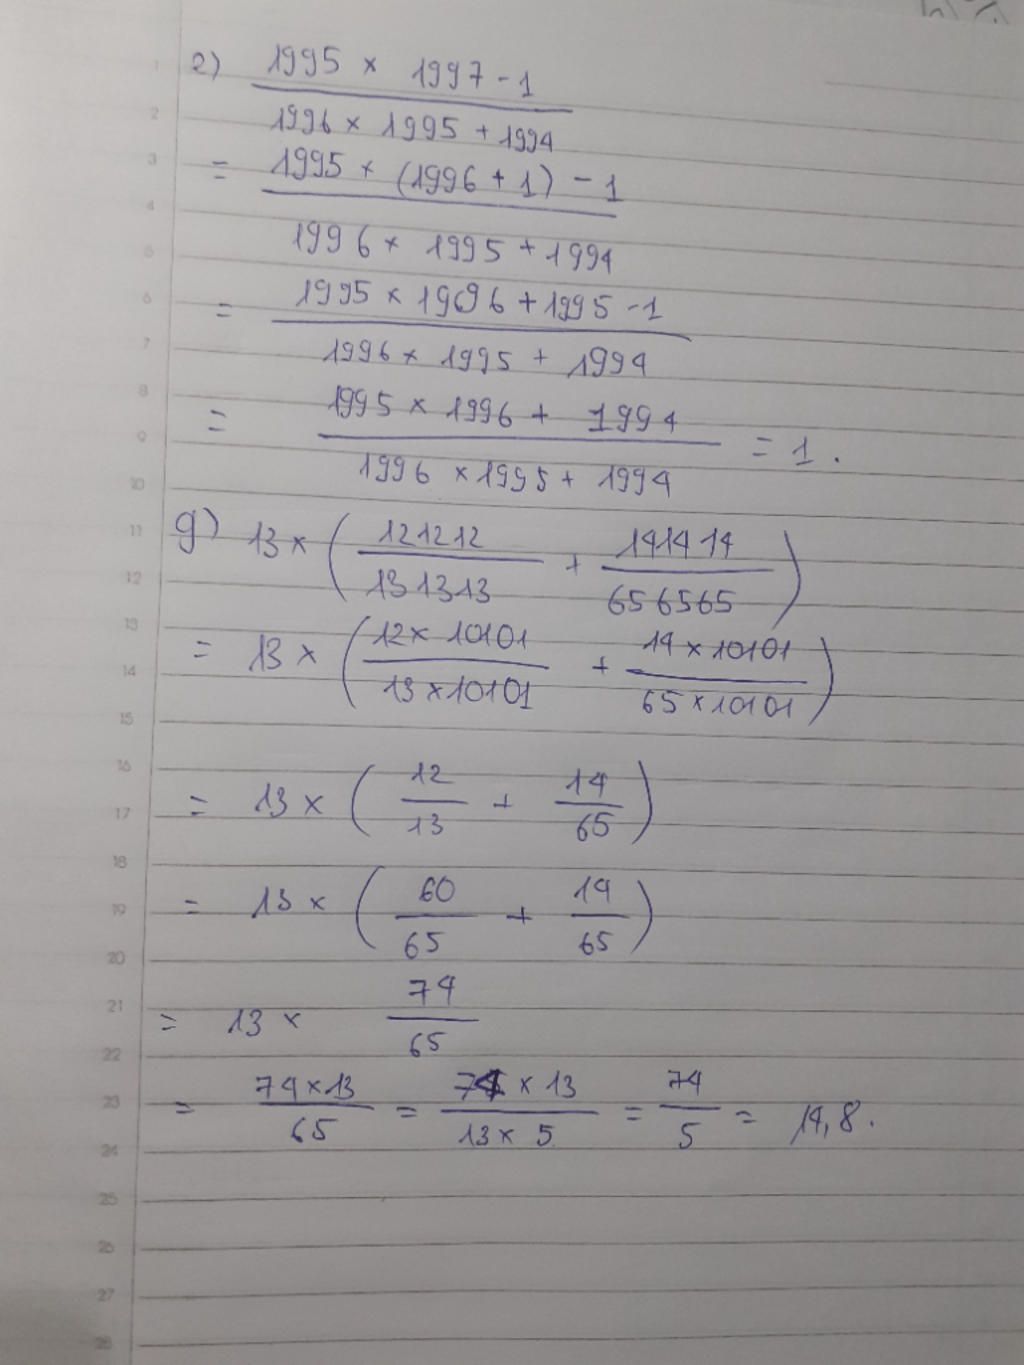 e) 1995 × 1997 - 1
1996 × 1995 + 1994
= 1995 × (1996 + 1) - 1
1996 × 1995 + 1994
= 1995 × 1996 + 1995 - 1
1996 × 1995 + 1994
= 1995 × 1996 + 1994 = 1.
1996 × 1995 + 1994
g) 13 × ( 121212 + 141414 )
131313 656565
= 13 × ( 12 × 10101 + 14 × 10101 )
13 × 10101 65 × 10101
= 13 × ( 12 + 14 )
13 65
= 13 × ( 60 + 14 )
65 65
= 13 × 74
65
= 74 × 13 = 74 × 13 = 74 = 14,8.
65 13 × 5 5
1
2
3
4
5
6
7
8
9
10
11
12
13
14
15
16
17
18
19
20
21
22
23
24
25
26
27
28